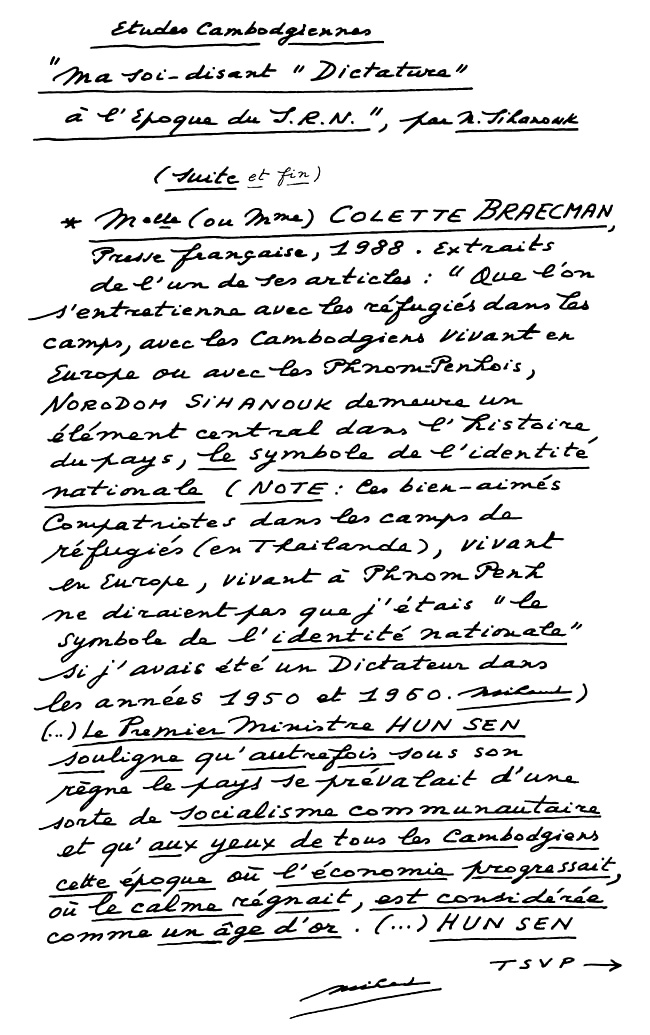 Etudes Cambodgiennes
"Ma soi-disant "Dictature"
à l'Epoque du S.R.N.", par N. Sihanouk
(suite et fin)
* Melle (ou Mme) COLETTE BRAECMAN,
Presse française, 1988. Extraits
de l'un de ses articles : "Que l'on
s'entretienne avec les réfugiés dans les
camps, avec les Cambodgiens vivant en
Europe ou avec les Phnom-Penhois,
NORODOM SIHANOUK demeure un
élément central dans l'histoire
du pays, le symbole de l'identité
nationale (NOTE : Ces bien-aimés
Compatriotes dans les camps de
réfugiés (en Thaïlande), vivant
en Europe, vivant à Phnom Penh
ne diraient pas que j'étais "le
symbole de l'identité nationale"
si j'avais été un Dictateur dans
les années 1950 et 1960. )
(...) Le Premier Ministre HUN SEN
souligne qu'autrefois sous son
règne le pays se prévalait d'une
sorte de socialisme communautaire
et qu'aux yeux de tous les Cambodgiens
cette époque où l'économie progressait,
où le calme régnait, est considérée
comme un âge d'or. (...) HUN SEN
TSVP →